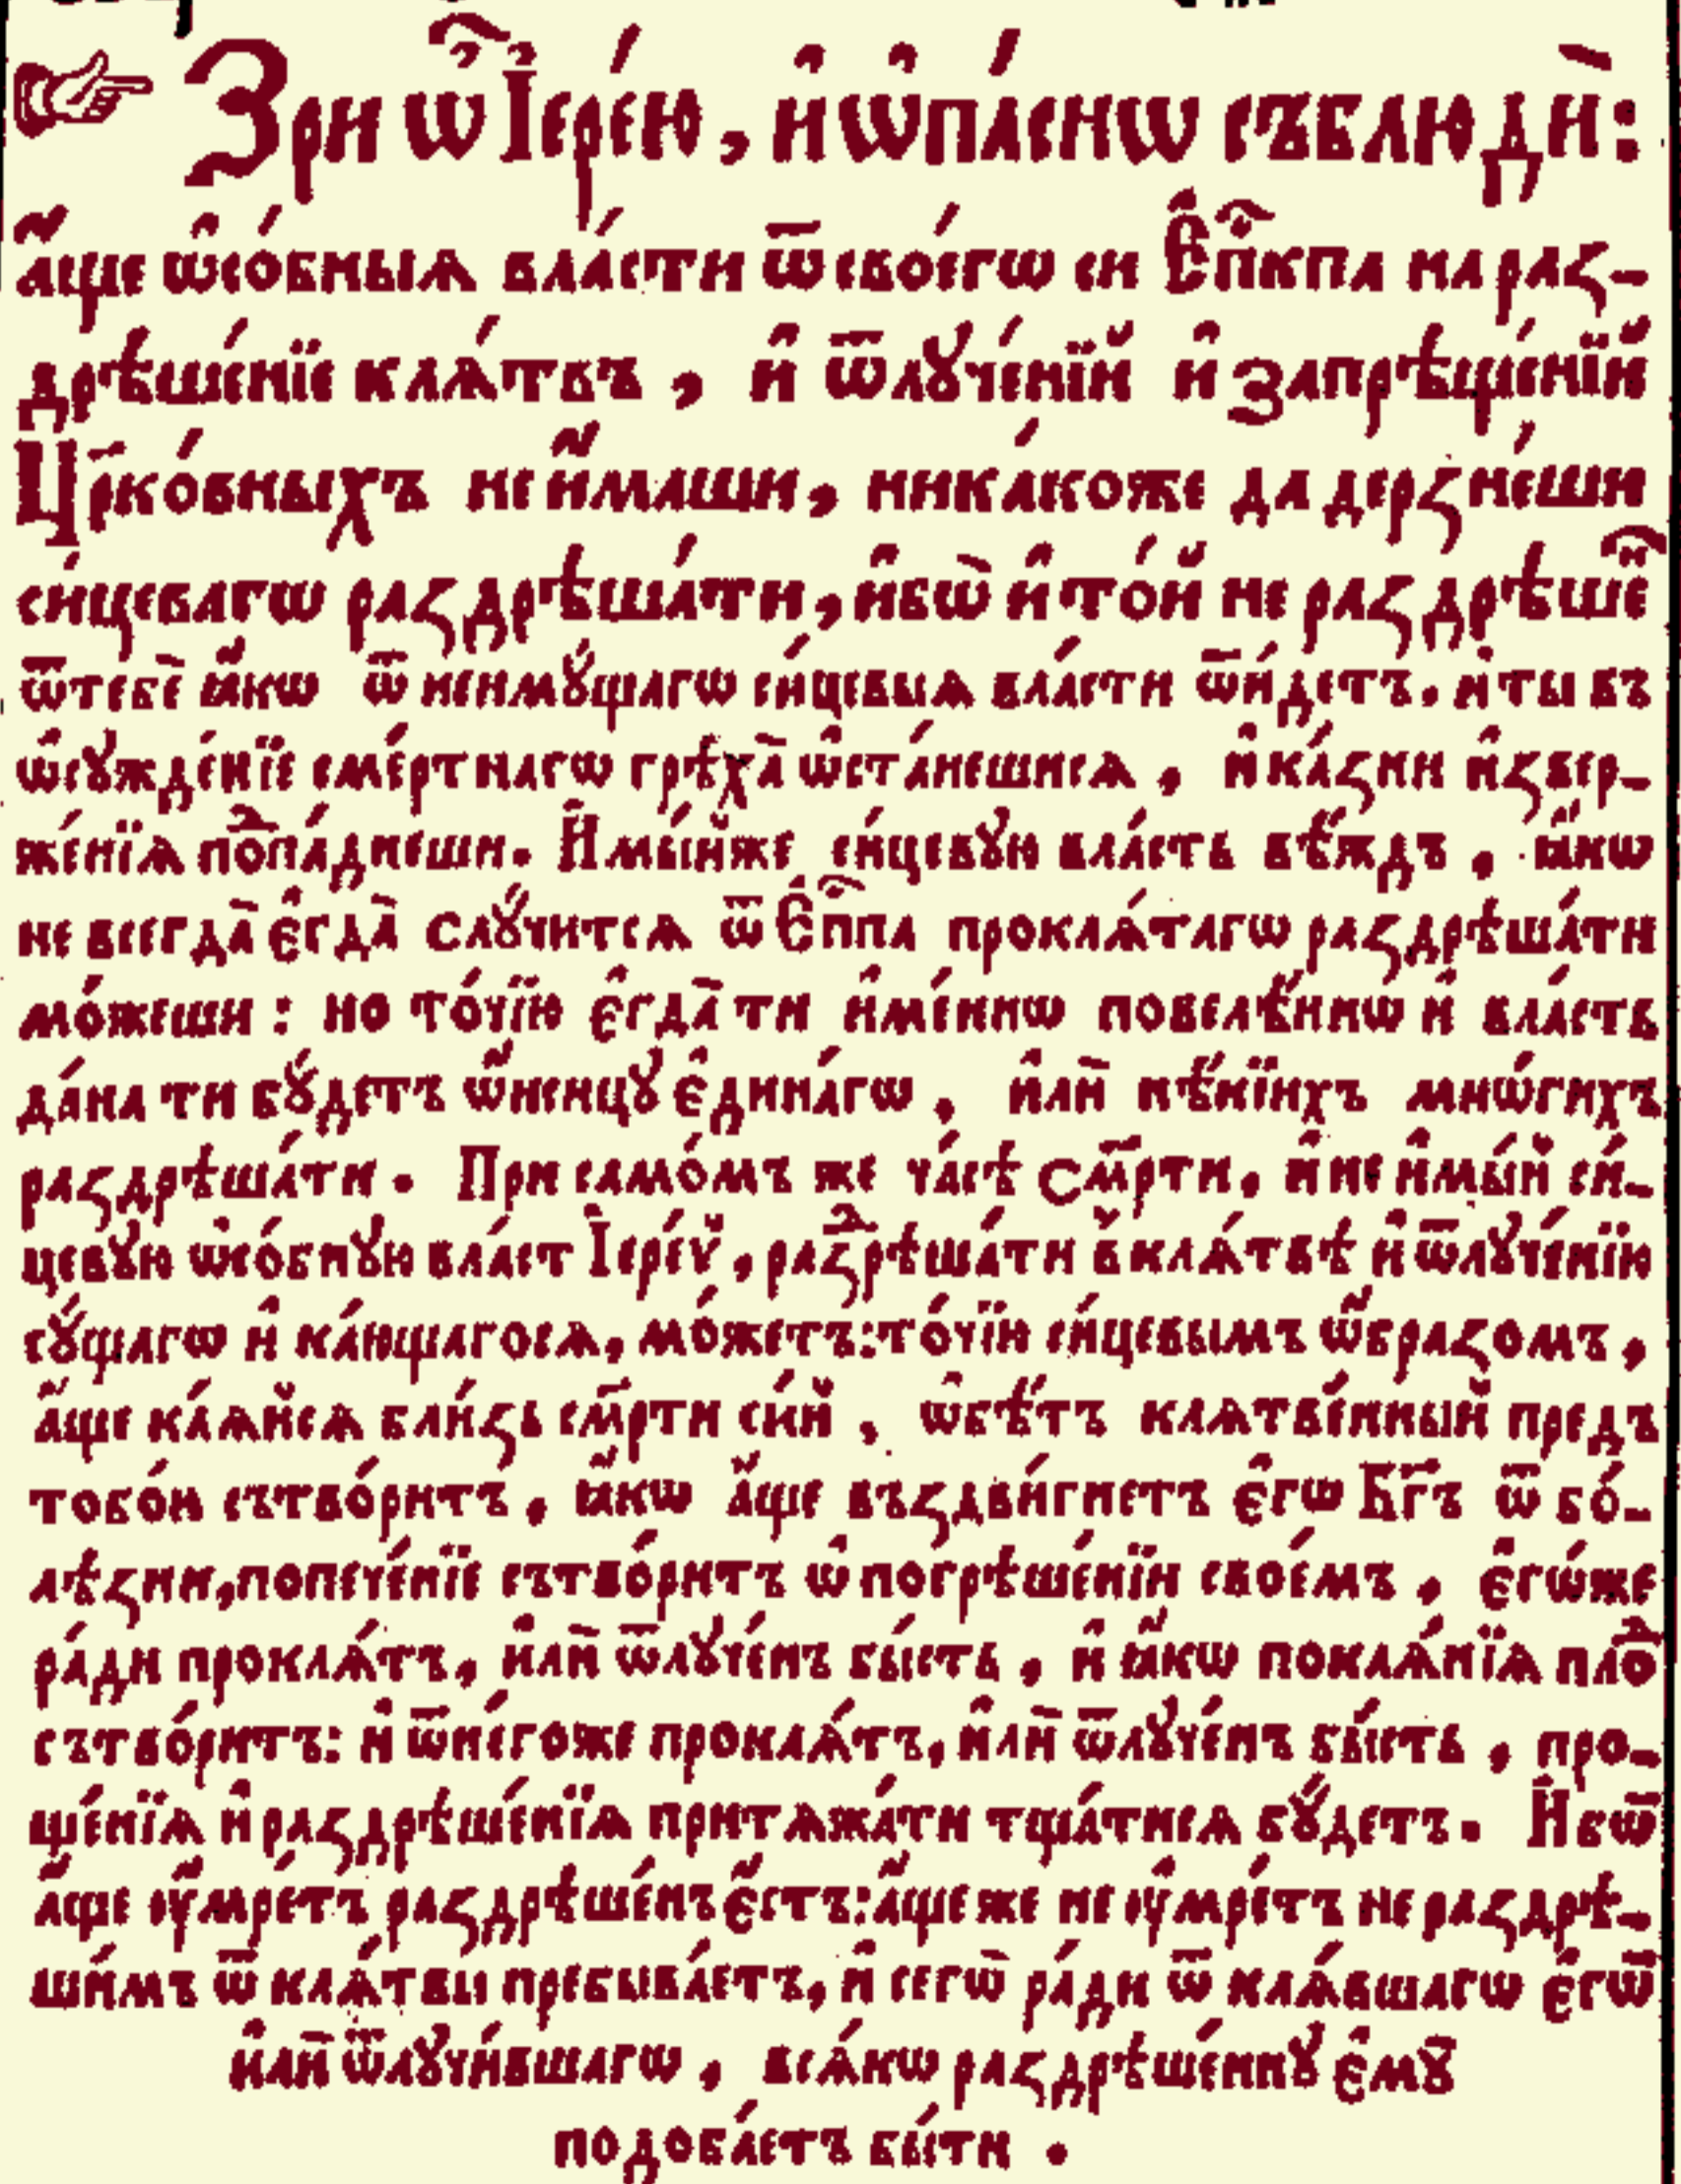 Зри ѽ Іерею, и ѡпасенѡ съблюди:
аще ѡсобныѧ власти ѿ своегѡ си Еп҃кпа на раз-
дрѣшенїе клѧтвъ, и ѿлꙋченїй и запрѣщенїй
Цр҃ковныхъ не имаши, никакоже да дерзнеши
сицевагѡ раздрѣшати, ибѡ и той не раздрѣше
ѿ тебе ꙗкѡ ѿ неимꙋщагѡ сицевыѧ власти ѿидетъ. и ты въ
ѡсꙋжденїе смертнагѡ грѣха ѡстанешисѧ, и казни извер-
женїѧ поⷣпаднеши. Имыйже сицевꙋю власть вѣждъ, ꙗкѡ
не всегда егда слꙋчитсѧ ѿ Еп҃па проклѧтагѡ раздрѣшати
можеши: но точїю егда ти именнѡ повелѣннѡ и власть
дана ти бꙋдетъ ѡненцꙋ единагѡ, или нѣкїихъ мнѡгихъ
раздрѣшати. При самомъ же часѣ См҃рти, и не имый си-
цевꙋю ѡсобнꙋю власт Іерей, разⷣрѣшати в клѧтвѣ и ѿлꙋченїю
сꙋщагѡ и кающагосѧ, можетъ: точїю сицевымъ ѡбразомъ,
аще каѧйсѧ близь см҃рти сий, ѡбѣтъ клѧтвенный предъ
тобои сътворитъ, ꙗкѡ аще въздвигнетъ егѡ Бг҃ъ ѿ бо-
лѣзни, попеченїе сътворитъ ѡ погрѣшенїи своемъ, егѡже
ради проклѧтъ, или ѿлꙋченъ бысть, и ꙗкѡ покаѧнїѧ плоⷣ
сътворитъ: и ѿ негоже проклѧтъ, или ѿлꙋченъ бысть, про-
щенїѧ и раздрѣшенїѧ притѧжати тщатисѧ бꙋдетъ. Ибѡ
аще оумретъ раздрѣшенъ естъ: аще же не оумретъ не раздрѣ-
шимъ ѿ клѧтвы пребываетъ, и сегѡ ради ѿ клѧвшагѡ егѡ
или ѿлꙋчившагѡ, всѧкѡ раздрѣшеннꙋ емꙋ
подобаетъ быти.